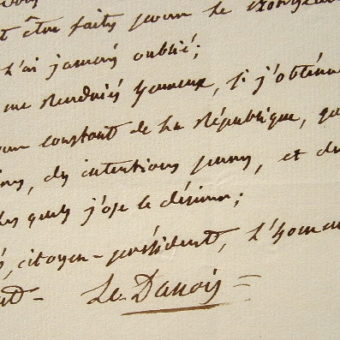 être faits pour le
n'ai jamais oublié;
me rendriés heureux, si j'obtena
constant de la République, qu
des intentions pures, et d
lesquels j'ose le désirer;
citoyen-président, l'homm
Le Danois